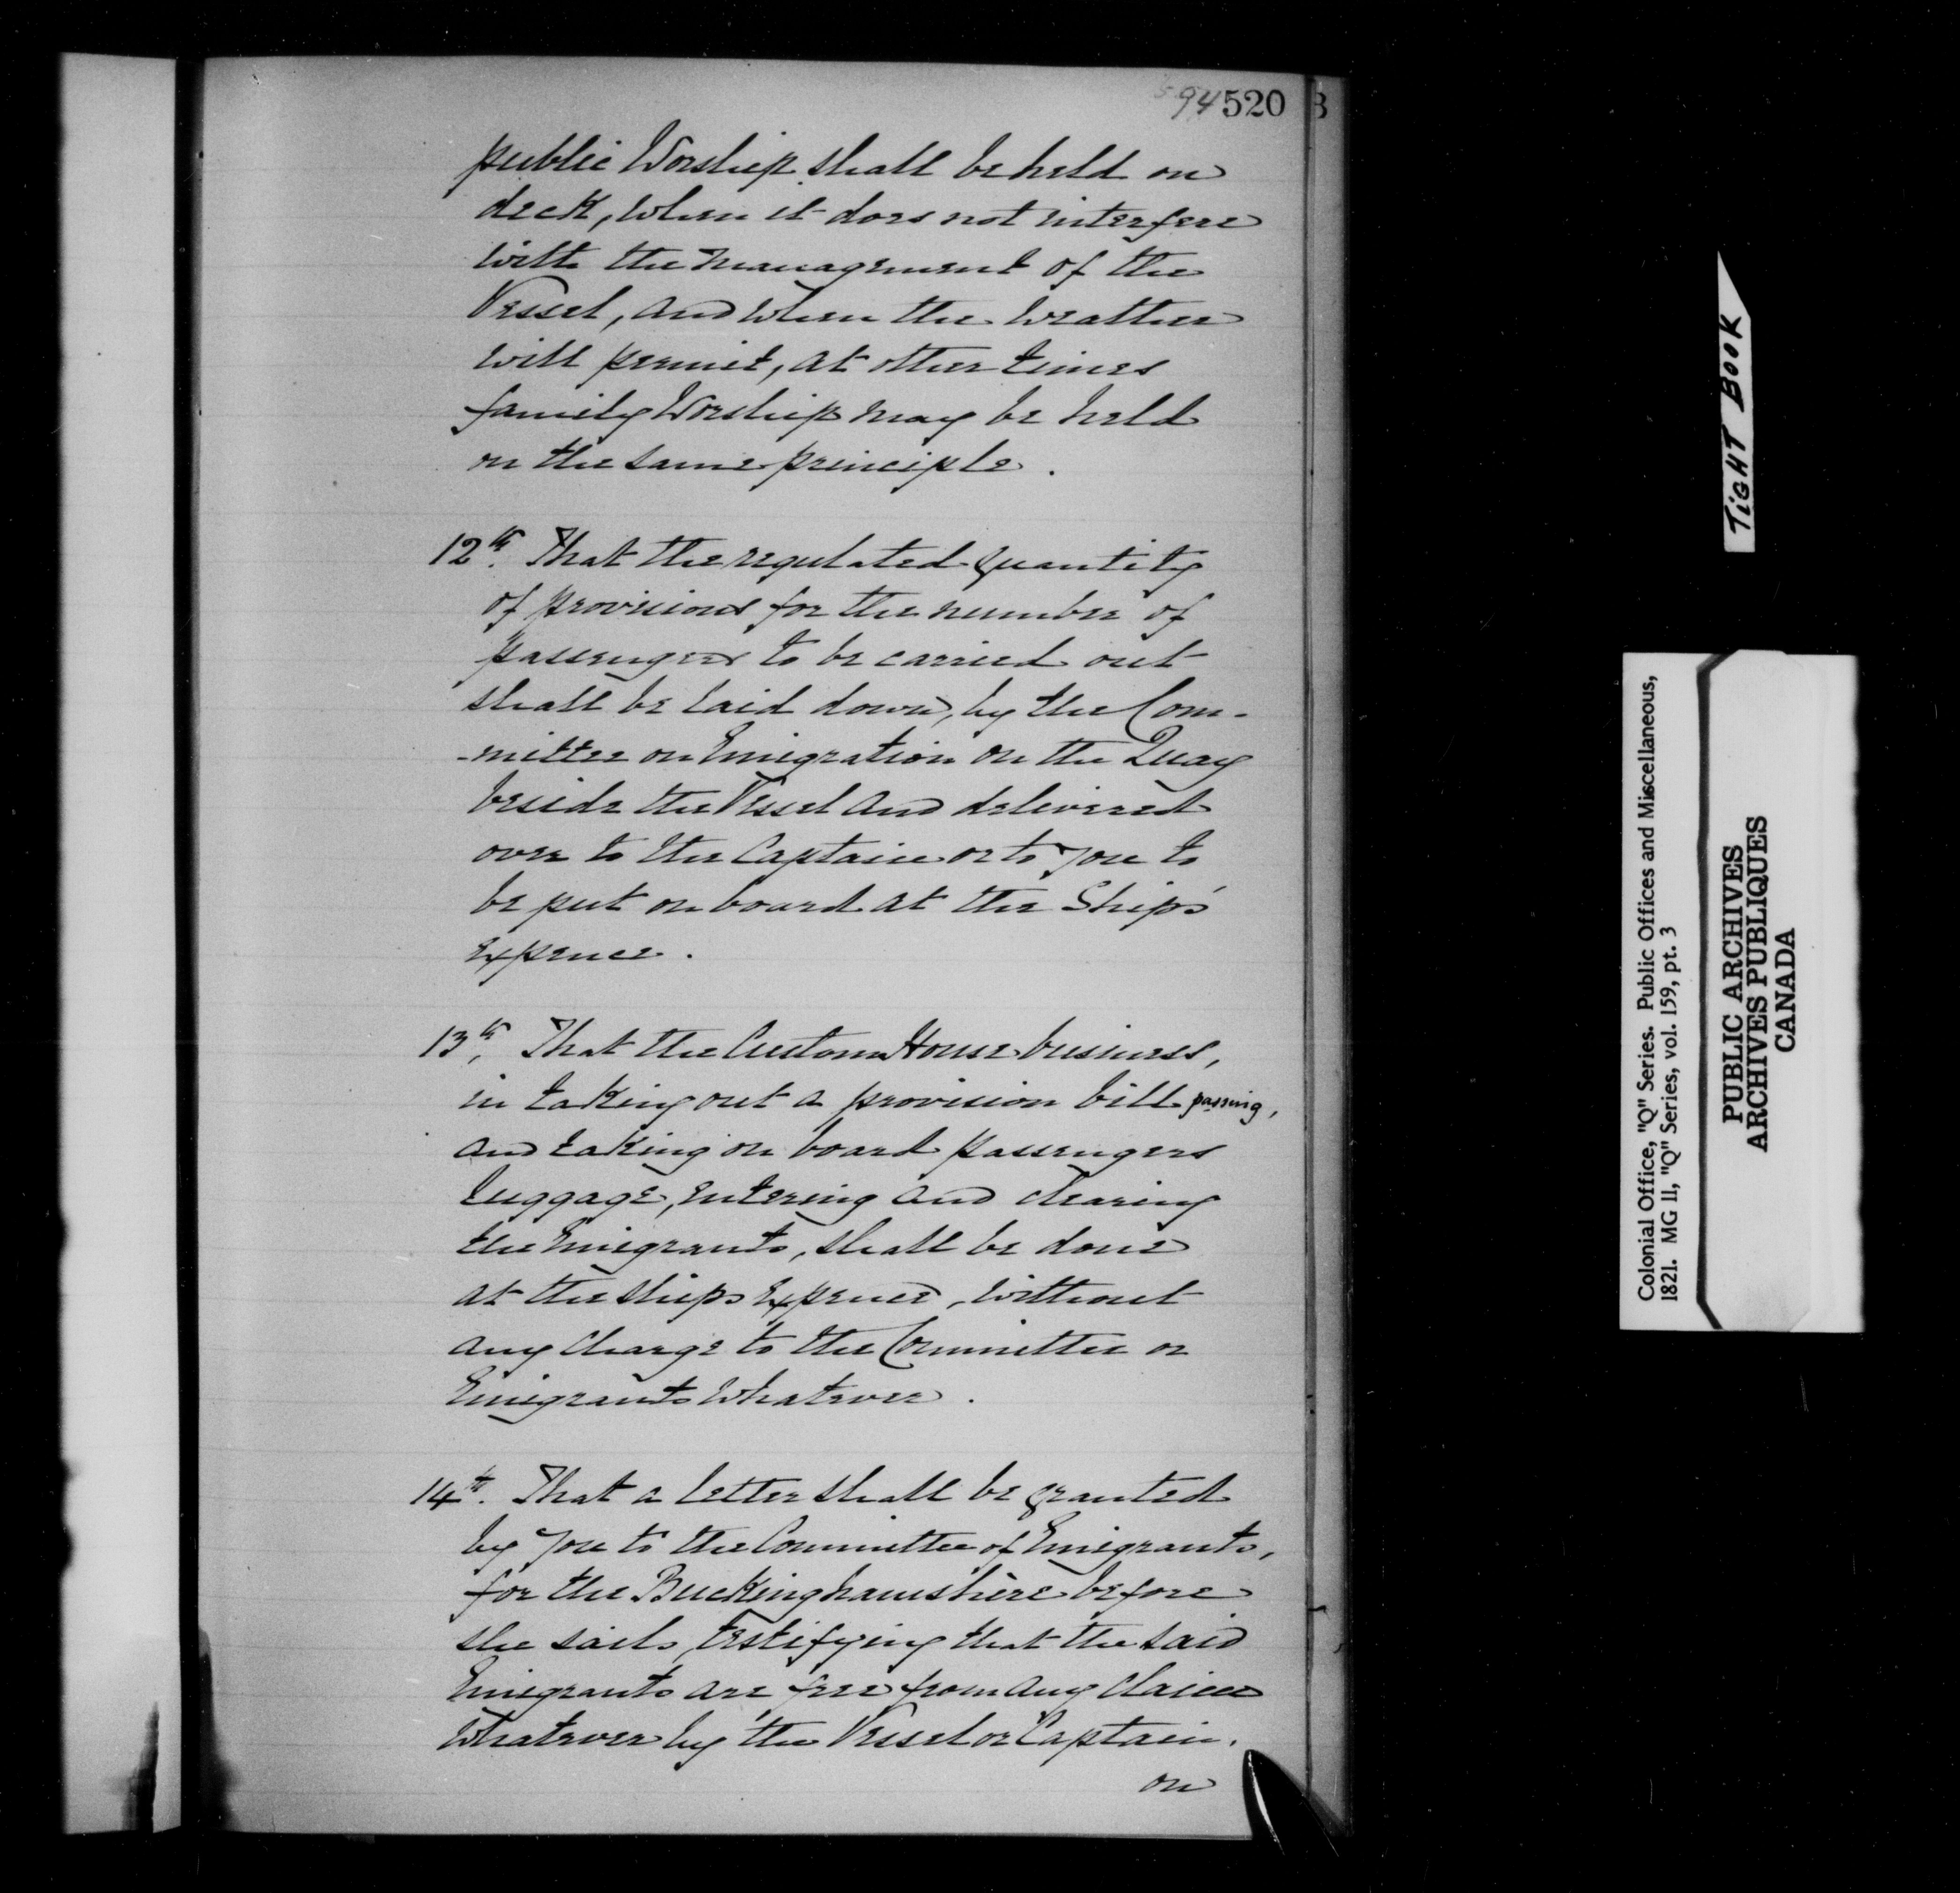 594 520
public Worship shall be held on
deck, when it does not interfere
with the management of the
Vessel, and when the weather
will permit, at other times
family Worship may be held
on the same principle.
12th. That the regulated quantity
of provisions for the number of
passengers to be carried out
shall be laid down, by the Com-
-mittee on Emigration on the Quay
beside the Vessel and delivered
over to the Captain or to you to
be put on board at the Ship's
expence.
13th, That the Custom House business,
in taking out a provision bill passing,
and taking on board passengers
luggage, entering and clearing
the Emigrants, shall be done
at the ships expence, without
any charge to the Committee or
Emigrants whatever.
14th. That a letter shall be granted
by you to the Committee of Emigrants,
for the Buckinghamshire before
she sails, testifying that the said
Emigrants are free from any claim
whatever by the Vessel or Captain.
on
TIGHT BOOK
Colonial Office, "Q" Series. Public Offices and Miscellaneous,
1821. MG 11, "Q" Series, vol. 159, pt. 3
PUBLIC ARCHIVES
ARCHIVES PUBLIQUES
CANADA